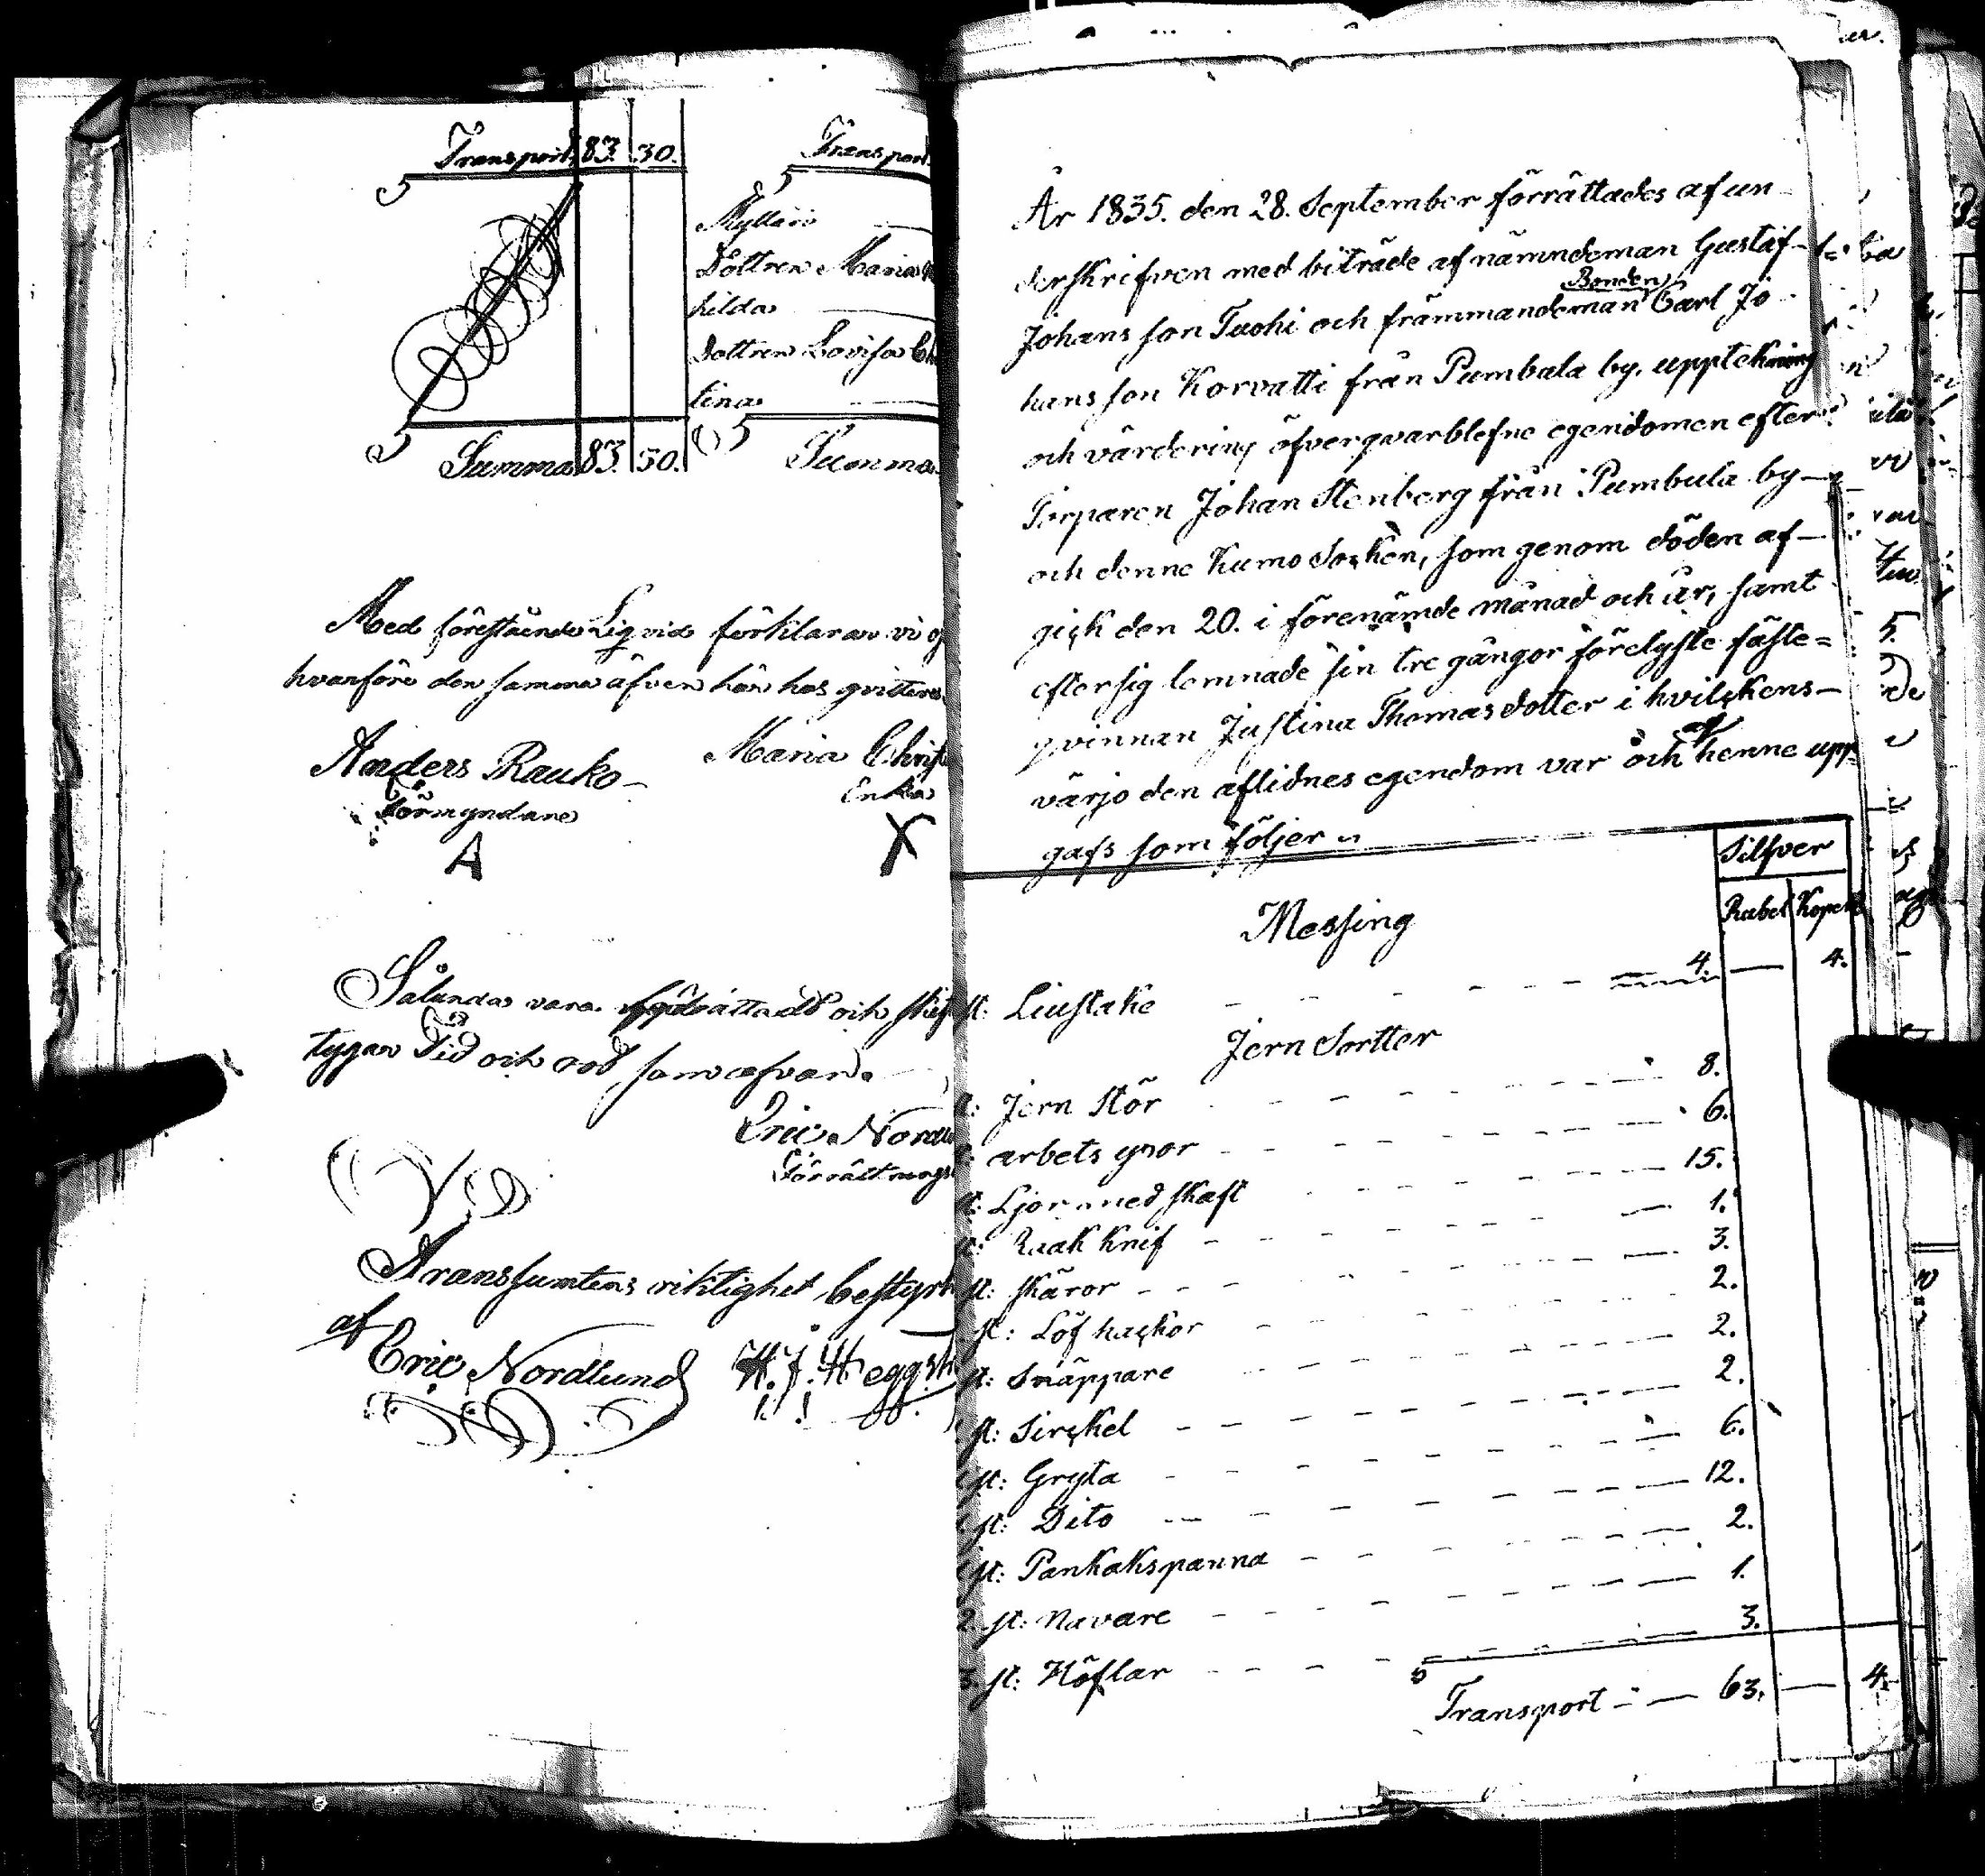 Transport 83. 30. Transport
Myllari
Dottren Maria
hilda
Dottren Lovisa
tina
Summa 83. 30. Summa
Med föreståénde Liqvid förklarar vi
hvarföre den samma äfven här hos qvitteras
Anders Rauko
Förmyndare
A
Maria Christ
Enka
X
Sålunda vara förrättadt och skift
tygar Tid och ort som ofvan.
Eric Nordlu
Förrättnings
Transsumtens riktighet bestyrk
af
Eric Nordlund H. J. Heggstr
År 1835. den 28. September förrättades af un-
derskrifven med biträde af nämndeman Gustaf
Johansson Tuohi och främmandeman Bonden Carl Jo-
hansson Korvatti från Pumbala by, upptekning
och värdering öfver qvarblefne egendomen efter
Torparen Johan Stenberg från Pumbula by
och denne Kumo Socken, som genom döden af-
gick den 20. i förenämde månad och år, samt
efter sig lemnade sin tre gångor förelyste fäste=
qvinnan Justina Thomasdotter i hvilckens-
värjo den aflidnes egendom var och af henne upp-
gafs som följer
Silfver
Rubel Kopek
Messing
st: Liustake 4. — 4.
Jern Sortter
st: Jern Stör 8.
arbets yxor 6.
st: Ljor med skaft 15.
st: Raak knif 1.
st: skäror 3.
st: Löf hackor 2.
st: Snäppare 2.
st: Sirckel 2.
st: Gryta 6.
st: Dito 12.
st: Pankakspanna 2.
2. st: Navare 1.
3. st: Höflar 3.
Transport — 63. — 4.